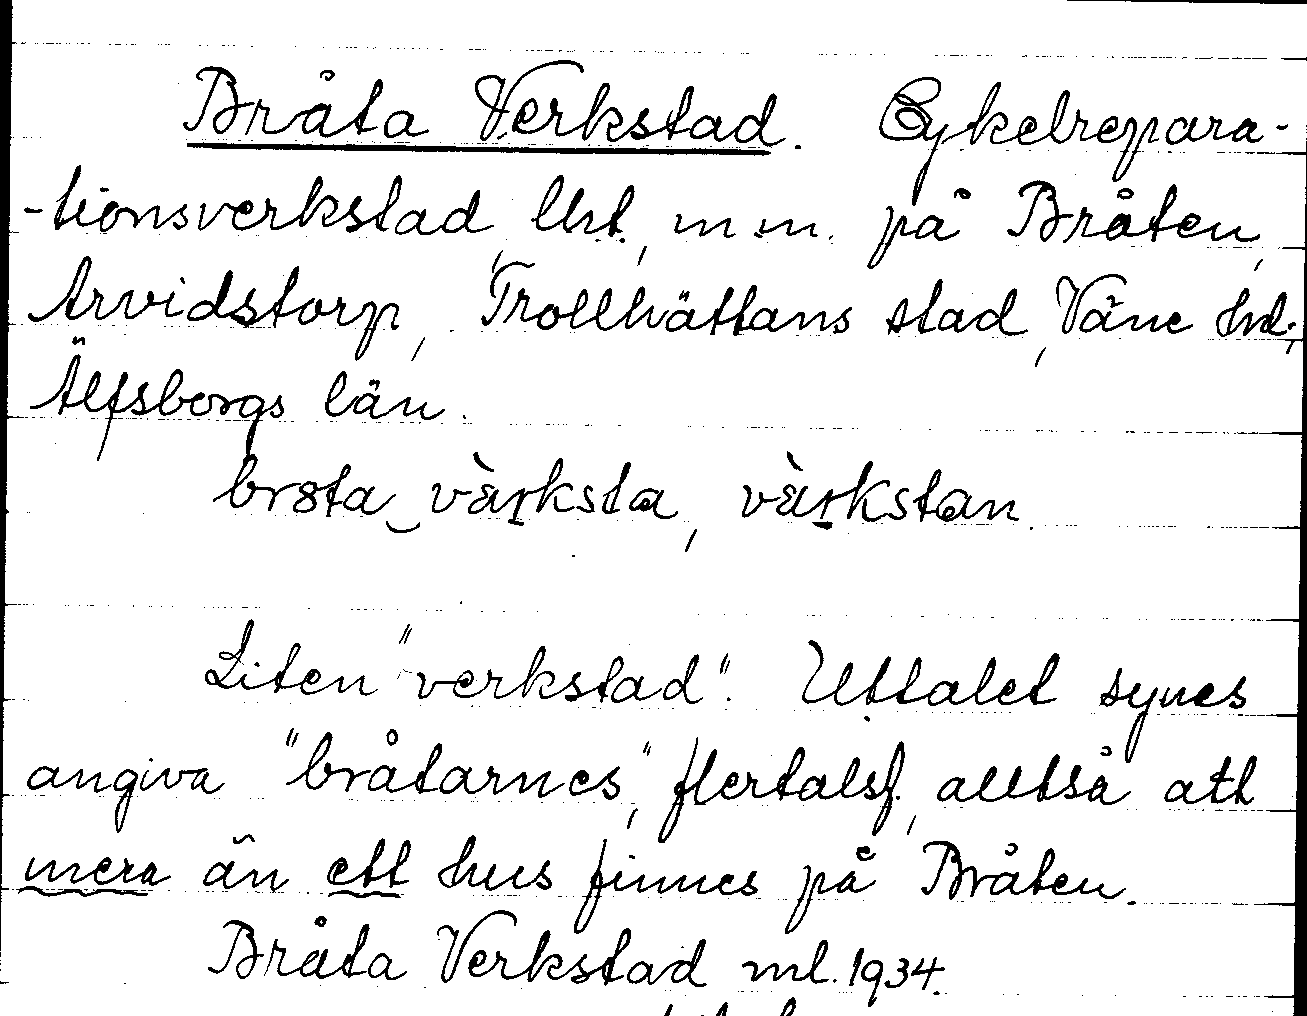 Bråta Verkstad. Cykelrepara-
-tionsverkstad, lht., m.m. på Bråten,
Arvidstorp, Trollhättans stad, Väne hd.,
Älfsborgs län.
brota‿värksta, värkstan.
Liten "verkstad". Uttalet synes
angiva "bråtarnes", flertalsf., alltså att
mera än ett hus finnes på Bråten.
Bråta Verkstad ml. 1934.